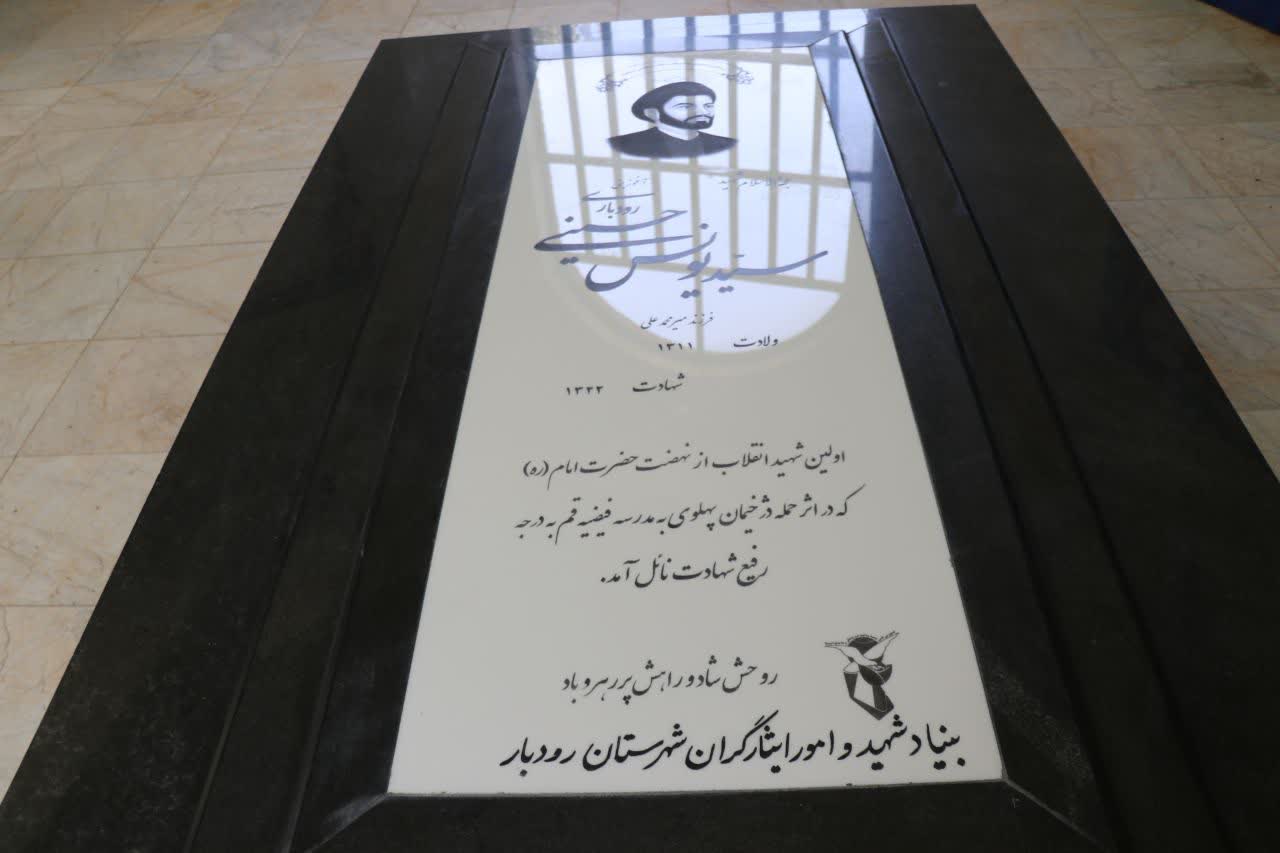 رودباری
سیّد یونس حسینی
فرزند میرمحمد علی
ولادت ۱۳۱۱
شهادت ۱۳۴۲
اولین شهید انقلاب از نهضت حضرت امام (ره)
که در اثر حمله دژخیمان پهلوی به مدرسه فیضیه قم به درجه
رفیع شهادت نائل آمد.
روحش شاد و راهش پر رهرو باد
بنیاد شهید و امور ایثارگران شهرستان رودبار